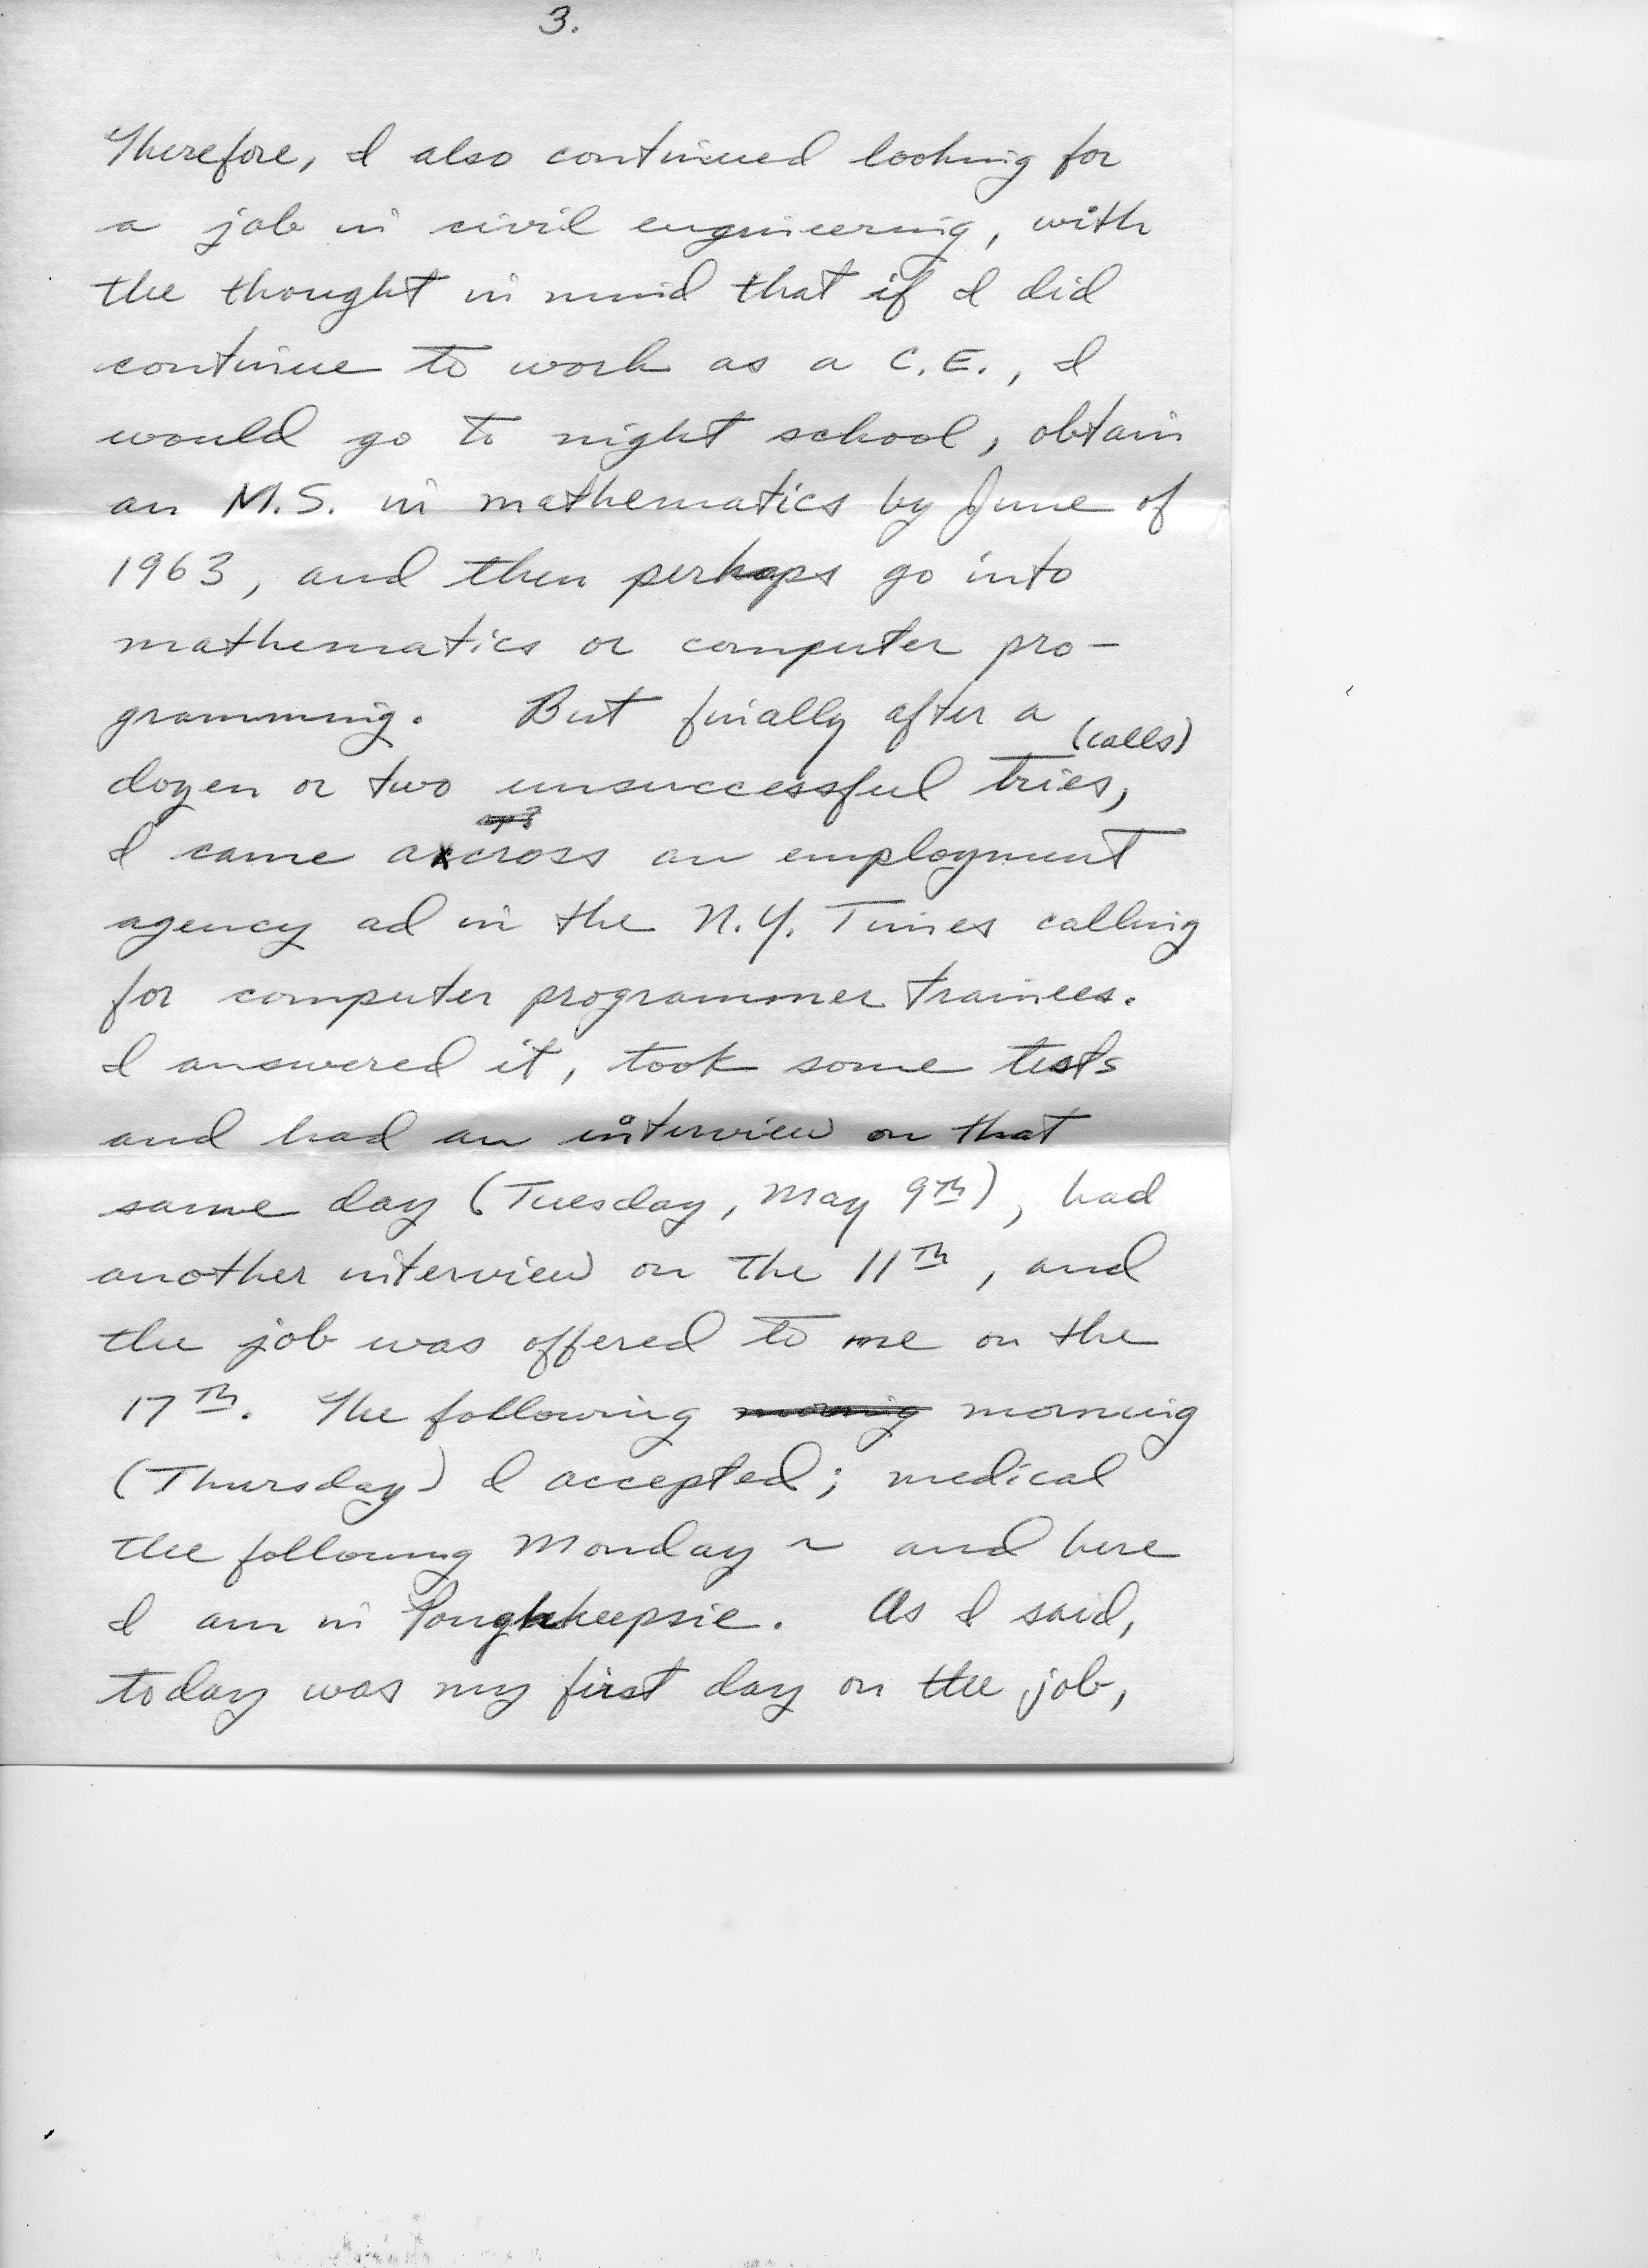 3.
Therefore, I also continued looking for
a job in civil engineering, with
the thought in mind that if I did
continue to work as a C.E., I
would go to night school, obtain
an M.S. in mathematics by June of
1963, and then perhaps go into
mathematics or computer pro-
gramming. But finally after a
(calls)
dozen or two unsuccessful tries,
I came across an employment
agency ad in the N.Y. Times calling
for computer programmer trainees.
I answered it, took some tests
and had an interview on that
same day (Tuesday, May 9th), had
another interview on the 11th, and
the job was offered to me on the
17th. The following morning morning
(Thursday) I accepted; medical
the following Monday ~ and here
I am in Poughkeepsie. As I said,
today was my first day on the job,